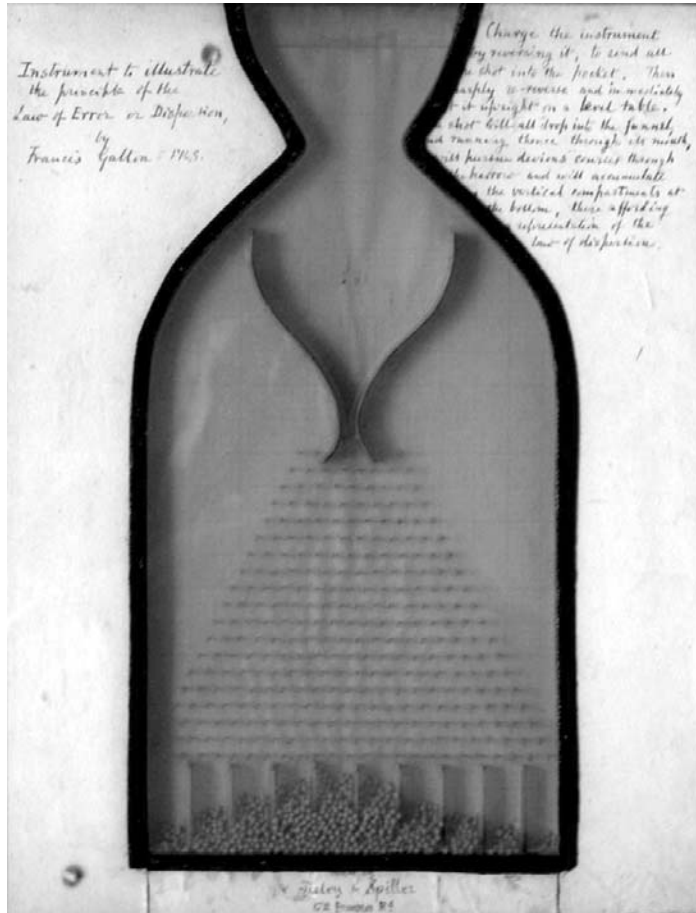 Instrument to illustrate
the principle of the
Law of Error or Dispersion,
by
Francis Galton F.R.S.
Charge the instrument
by reversing it, to send all
shot into the pocket. Then
sharply re-reverse and immediately
it upright on a level table.
shot will all drop into the funnel,
and running thence through its mouth,
will pursue devious courses through
the harrow and will accumulate
the vertical compartments at
the bottom, there affording
representation of the
law of dispersion.
Tisley & Spiller